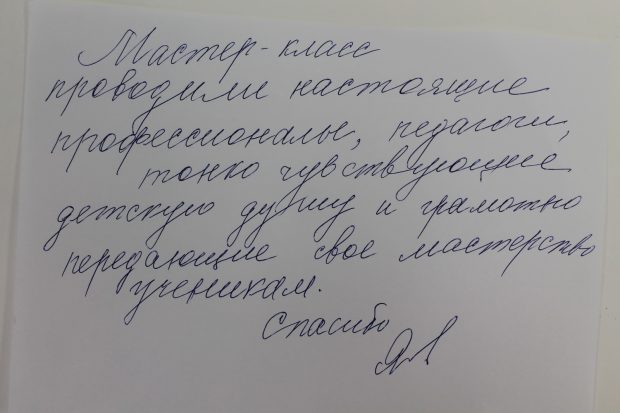 Мастер-класс
проводили настоящие
профессионалы, педагоги,
тонко чувствующие
детскую душу и грамотно
передающие свое мастерство
ученикам.
Спасибо